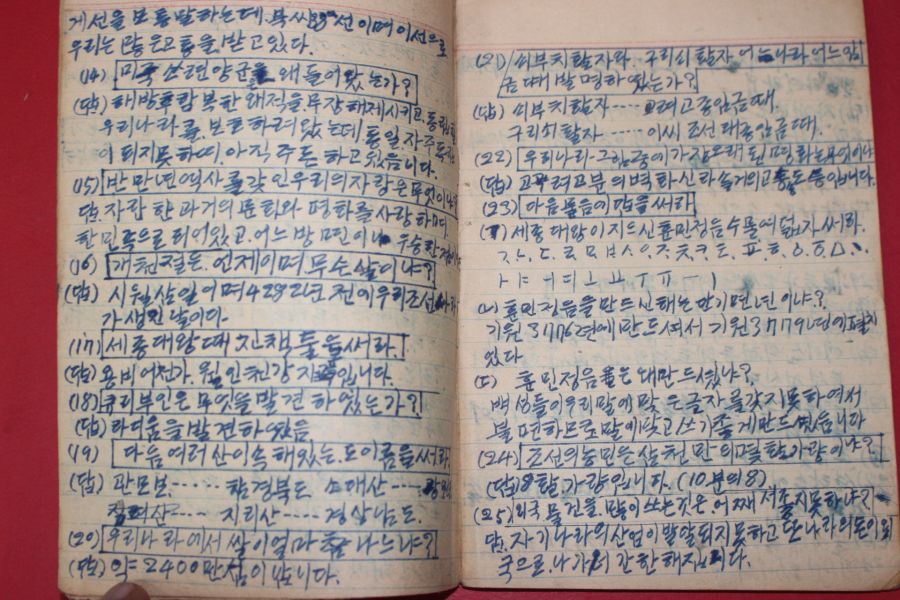 게선을 보통 말하는데. 북씨38선이며 이선으로
우리는 많은고통을 받고있다.
(14) 미국 쏘련양군을 왜들어왔는가?
(답) 해방후 항복한 왜적을 무장해제시키고, 독립
우리나라를, 보호하려 왔는데 통일 자주독
이 되지못하여, 아직 주둔하고 있읍니다.
(15) 반만년역사를 갖인 우리의 자랑은 무엇이냐?
답. 자랑한 과거의 문화와 평화를 사랑하며
한민족으로 되어있고. 어느방면이나 우승한
(16) 개천절은. 언제이며. 무슨날이냐?
(답) 시월삼일이며 4282년전에 우리조선
가 생긴날이다.
(17) 세종대왕때 진책들을 써라.
(답) 용비어천가. 월인천강지곡입니다.
(18) 큐리부인은 무엇을 발견하였는가?
(답) 라디움을 발견하였음
(19) 다음여러산이 속해있는. 도이름을 써라.
(답) 관모봉……함경북도 소백산……
지리산……경상남도.
(20) 우리나라에서 쌀이얼마쯤 나느냐?
(답) 약=2400만섬이 납니다.
(21) 쇠부치활자와 구리쇠활자. 어느나라 어느임
금때 발명하였는가?
(답) 쇠부치활자……고려고종임금때.
구리쇠활자……이씨조선태종임금때.
(22) 우리나라. 그림중에 가장오래된 명화는무엇이냐
(답) 고구려고분의벽화 신라솔거의고 등입니다.
(23) 다음물음에 답을써라
(ㄱ) 세종대왕이 지으신 훈민정음수물여덟자써라.
ㄱ. ㄴ. ㄷ. ㄹ. ㅁ. ㅂ. ㅅ. ㅇ. ㅈ. ㅊ. ㅋ. ㅌ. ㅍ. ㅎ. ㆆ. ㆁ. ㅿ. ㆍ
ㅏ ㅑ ㅓ ㅕ ㅗ ㅛ ㅜ ㅠ ㅡ ㅣ
(ㄴ) 훈민정음을 만드신해는 단기면년이냐?
기원3776년에 만드셔서 기원3779년에펼치
있다
(ㄷ) 훈민정음은 왜만드셨나?
백성들이우리말에 맞은글자를갖지못하여서
불편하므로 말에맞고 쓰기좋게만드셨읍니다
(24) 조선의농민은 삼천만의멫할가량이냐?
(답) 8할가량입니다. (10분의8)
(25) 외국.물건을.많이쓰는것은.어째서좋지못하냐?
답. 자기나라의산업이발달되지못하고 돈이외
국으로.나가서 간한해집니다.